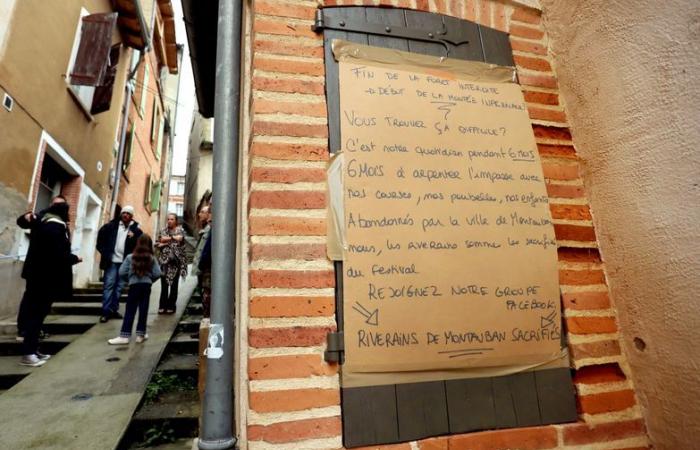 FIN DE LA FORET INTERDITE
→ DÉBUT DE LA MONTÉE INFERNALE
VOUS TROUVEZ ÇA DIFFICILE ?
C'est notre quotidien pendant 6 mois
6 MOIS à arpenter l'impasse avec
nos courses, nos poubelles, nos enfants
Abandonnés par la ville de Montauban
nous, les riverains sommes les sacrifiés
du festival
REJOIGNEZ NOTRE GROUPE
FACEBOOK
RIVERAINS DE MONTAUBAN SACRIFIÉS